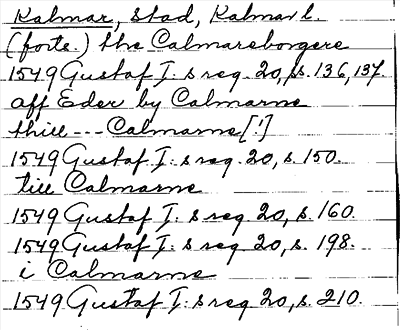 Kalmar, stad, Kalmar l.
(forts.) the Calmareborgere
1549 Gustaf I: s reg. 20, s. 136, 137.
aff Eder by Calmarne
thill --- Calmarne [!]
1549 Gustaf I: s reg. 20, s. 150.
till Calmarne
1549 Gustaf I: s reg 20, s. 160.
1549 Gustaf I: s reg 20, s. 198.
i Calmarne
1549 Gustaf I: s reg 20, s. 210.